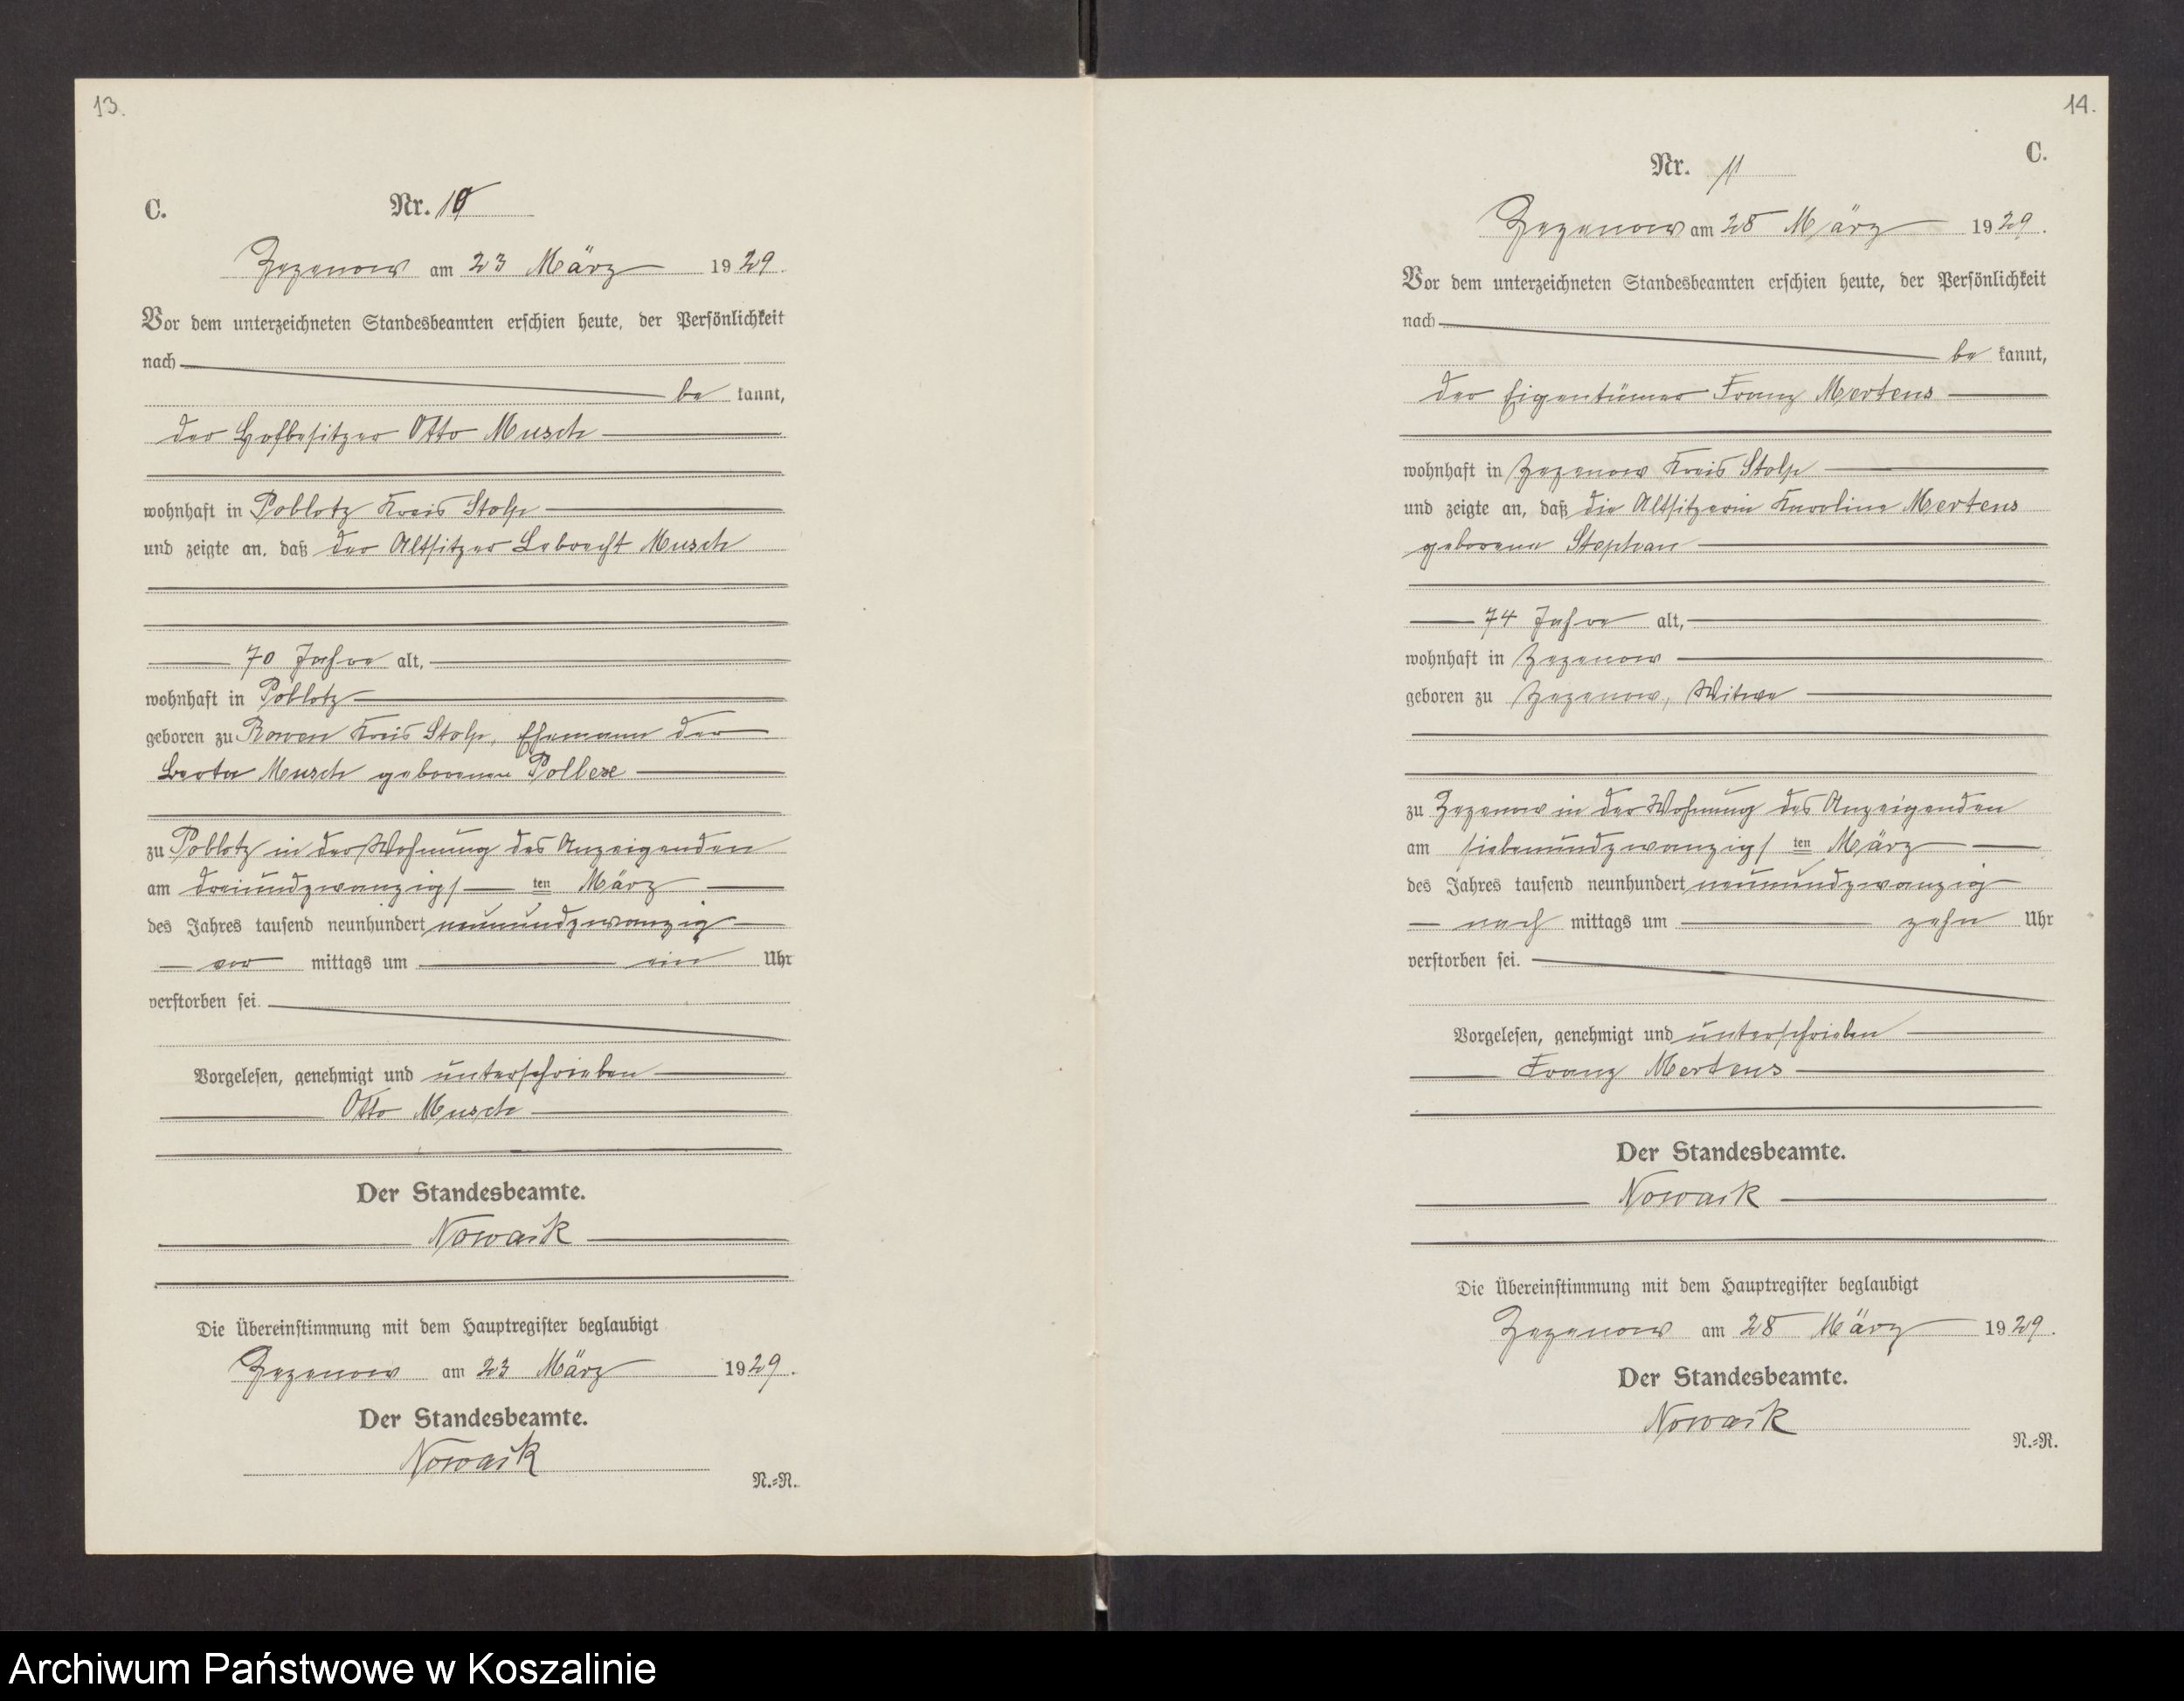 13.
C.
Nr. 10
Zezenow am 23 März 1929.
Vor dem unterzeichneten Standesbeamten erschien heute, der Persönlichkeit
nach
be kannt,
der Hofbesitzer Otto Musch
wohnhaft in Poblotz Kreis Stolp
und zeigte an, daß der Altsitzer Lebrecht Musch
70 Jahre alt,
wohnhaft in Poblotz
geboren zu Rowen Kreis Stolp, Ehemann der
Berta Musch geborenen Pollexe
zu Poblotz in der Wohnung des Anzeigenden
am dreiundzwanzigsten März
des Jahres tausend neunhundert neunundzwanzig
vor mittags um ein Uhr
verstorben sei.
Vorgelesen, genehmigt und unterschrieben
Otto Musch
Der Standesbeamte.
Nowack
Die Übereinstimmung mit dem Hauptregister beglaubigt
Zezenow am 23 März 1929.
Der Standesbeamte.
Nowack
N.=R.
14.
C.
Nr. 11
Zezenow am 28 März 1929.
Vor dem unterzeichneten Standesbeamten erschien heute, der Persönlichkeit
nach
be kannt,
der Eigentümer Franz Mertens
wohnhaft in Zezenow Kreis Stolp
und zeigte an, daß die Altsitzerin Karoline Mertens
geborene Stephan
74 Jahre alt,
wohnhaft in Zezenow
geboren zu Zezenow, Witwe
zu Zezenow in der Wohnung des Anzeigenden
am siebenundzwanzigsten März
des Jahres tausend neunhundert neunundzwanzig
nach mittags um zehn Uhr
verstorben sei.
Vorgelesen, genehmigt und unterschrieben
Franz Mertens
Der Standesbeamte.
Nowack
Die Übereinstimmung mit dem Hauptregister beglaubigt
Zezenow am 28 März 1929.
Der Standesbeamte.
Nowack
N.=R.
Archiwum Państwowe w Koszalinie